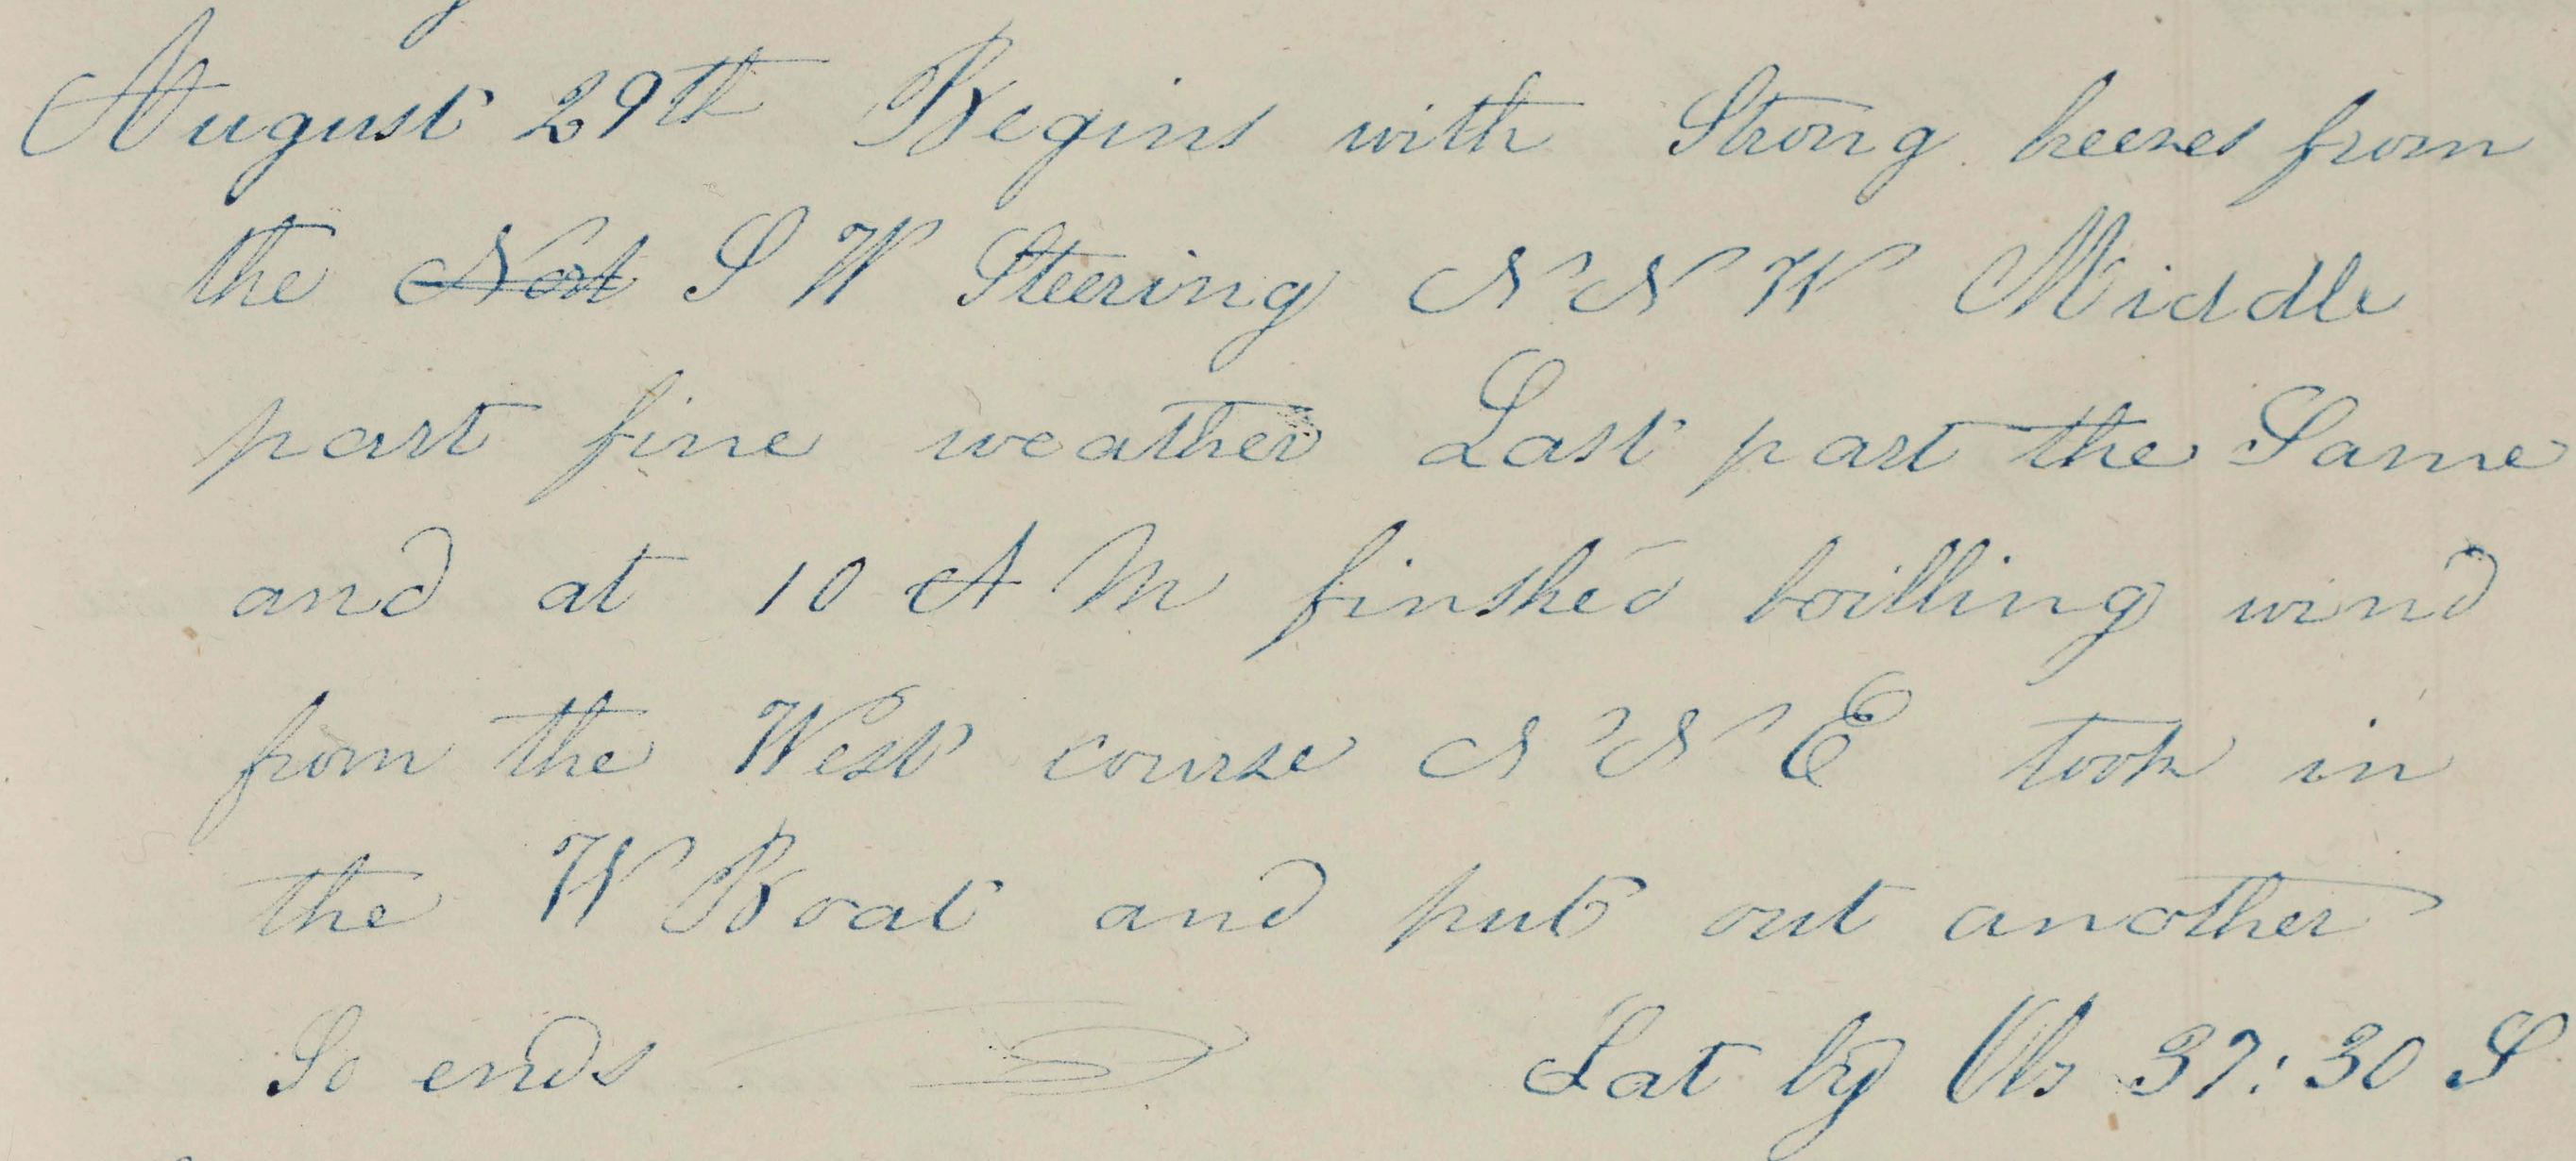 August 29th Begins with Strong breezes from
the Nort S W Steering N N W Middle
part fine weather Last part the Same
and at 10 A M finshed boilling wind
from the West course N N E took in
the W Boat and put out another
So ends Lat by Obs 37:30 S